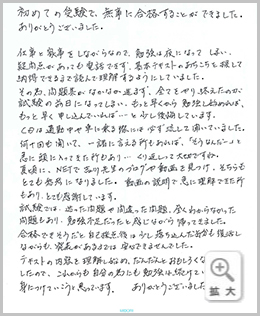 初めての受験で、無事に合格することができました。
ありがとうございました。
仕事と家事をしながらなので、勉強は夜になってしまい、
疑問点があっても電話できず、基本テキストのあちこちを探して
納得できるまで読んで理解するようにしていました。
その為、問題集がなかなか進まず、全てをやり終えたのが
試験の前日になってしまい、もっと早くから勉強し始めれば、
もっと早く申し込んでいれば…と少し後悔しています。
CDは通勤や車に乗る際には必ず流して聞いていました。
何十回も聞いて、一緒に言える所もあれば、「そうなんだー」と
急に頭に入ってきた所もあり…くり返しって大切ですね。
直後に、NETで
先生のブログや動画を見つけ、そちらも
とても参考になりました。動画の説明で急に理解できた所
もあり、とても感謝しています。
試験では、迷った問題や間違った問題、全くわからなかった
問題もあり、勉強不足だったと感じながら帰ってきました。
合格できそうだと自己採点後は少し落ち込んだ気分も復活し
ながらも、発表があるまでは安心できませんでした。
テキストの内容を理解し始め、だんだんとおもしろく
したので、これからも自分の為にも勉強は続けて
身につけていこうと思っています。 ありがとうございました
拡大